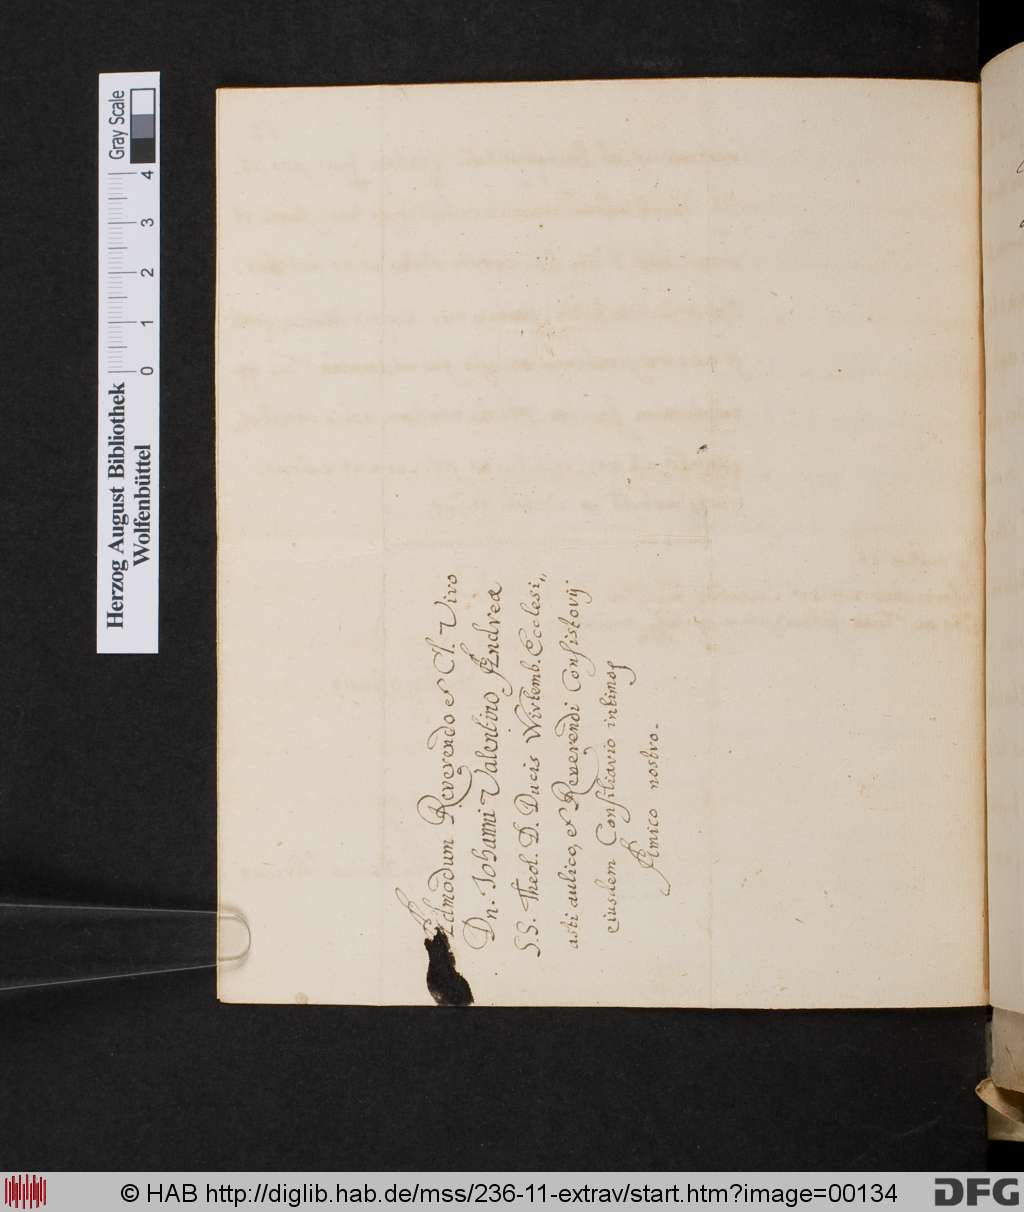 Admodum Reverendo & Cl. Viro
Dn. Johanni Valentino Andreæ
S.S. Theol. D. Ducis Wirtemb. Ecclesi„
asti aulico, & Reverendi Consistorij
eiusdem Consiliario intimo,
Amico nostro.
Herzog August Bibliothek
Wolfenbüttel
0 1 2 3 4
Gray Scale
© HAB http://diglib.hab.de/mss/236-11-extrav/start.htm?image=00134
DFG